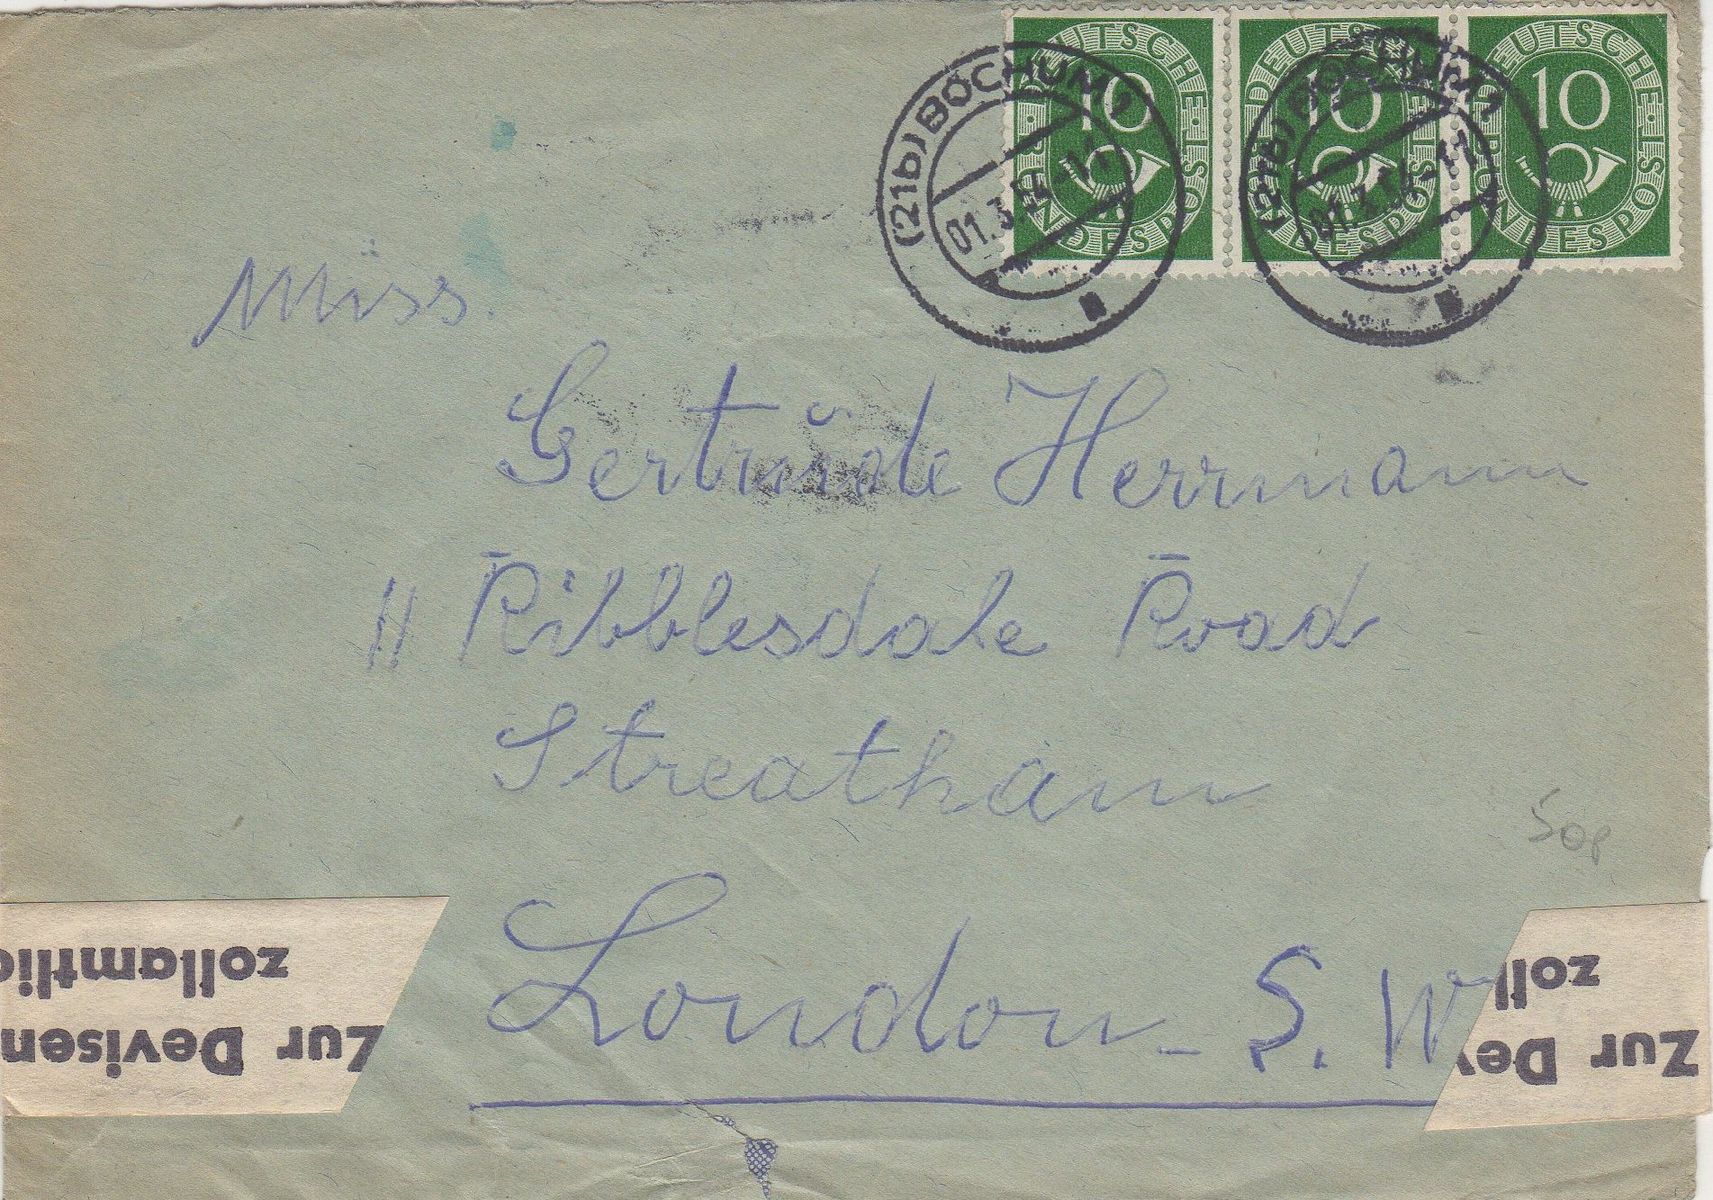 DEUTSCHE BUNDESPOST
10
DEUTSCHE BUNDESPOST
10
DEUTSCHE BUNDESPOST
10
(21b) BOCHUM 1
(21b) BOCHUM 1
Miss.
Gertrŭde Herrmann
11 Ribblesdale Road
Streatham
London S. W
50p
Zur Devisen
zollamtlic
Zur Dev
zoll